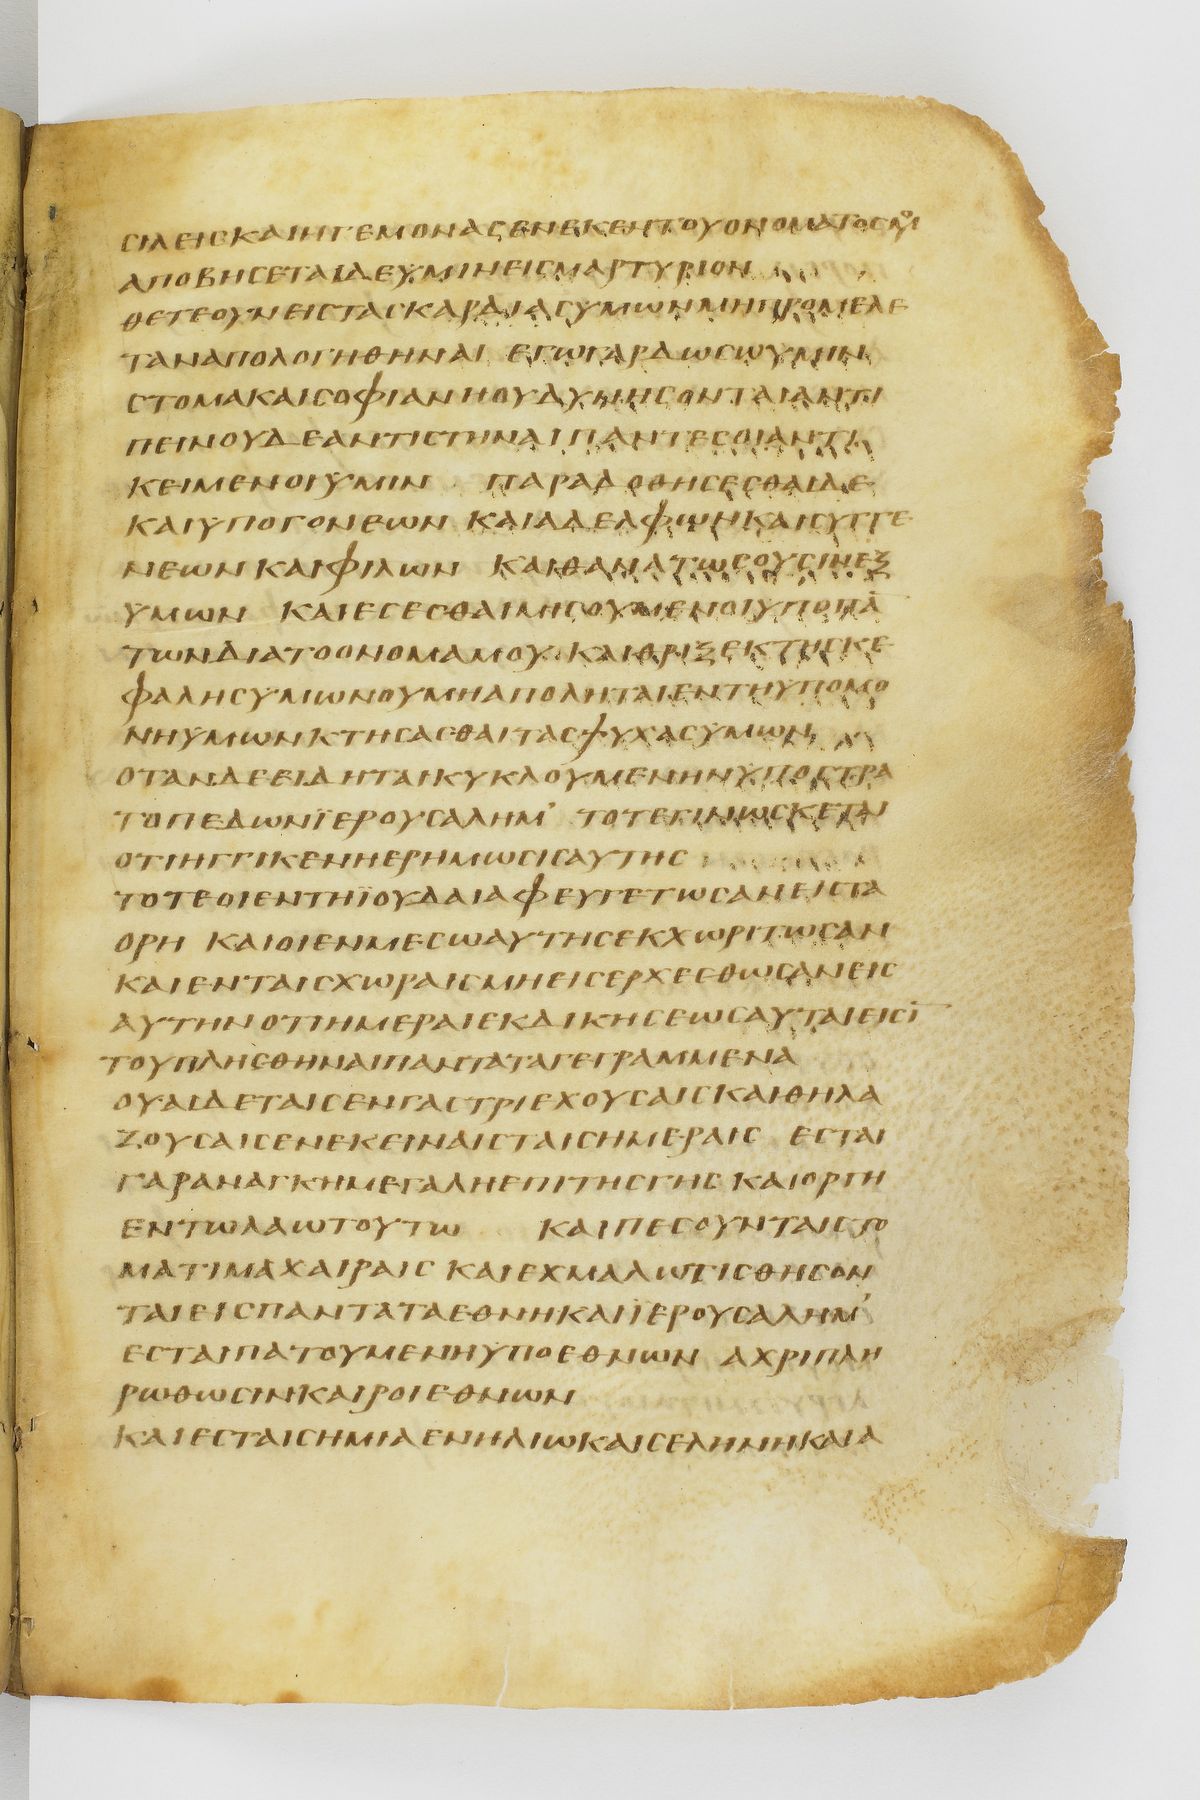 ϹΙΛΕΙϹΚΑΙΗΓΕΜΟΝΑϹΕΝΕΚΕΝΤΟΥΟΝΟΜΑΤΟϹΜΟΥ
ΑΠΟΒΗϹΕΤΑΙΔΕΥΜΙΝΕΙϹΜΑΡΤΥΡΙΟΝ
ΘΕΤΕΟΥΝΕΙϹΤΑϹΚΑΡΔΙΑϹΥΜΩΝΜΗΠΡΟΜΕΛΕ
ΤΑΝΑΠΟΛΟΓΗΘΗΝΑΙ ΕΓΩΓΑΡΔΩϹΩΥΜΙΝ
ϹΤΟΜΑΚΑΙϹΟΦΙΑΝΗΟΥΔΥΝΗϹΟΝΤΑΙΑΝΤΙ
ΠΕΙΝΟΥΔΕΑΝΤΙϹΤΗΝΑΙΠΑΝΤΕϹΟΙΑΝΤΙ
ΚΕΙΜΕΝΟΙΥΜΙΝ ΠΑΡΑΔΟΘΗϹΕϹΘΑΙΔΕ
ΚΑΙΥΠΟΓΟΝΕΩΝ ΚΑΙΑΔΕΛΦΩΝΚΑΙϹΥΓΓΕ
ΝΕΩΝΚΑΙΦΙΛΩΝ ΚΑΙΘΑΝΑΤΩϹΟΥϹΙΝΕΞ
ΥΜΩΝ ΚΑΙΕϹΕϹΘΑΙΜΙϹΟΥΜΕΝΟΙΥΠΟΠΑ̅
ΤΩΝΔΙΑΤΟΟΝΟΜΑΜΟΥΚΑΙΘΡΙΞΕΚΤΗϹΚΕ
ΦΑΛΗϹΥΜΩΝΟΥΜΗΑΠΟΛΗΤΑΙΕΝΤΗΥΠΟΜΟ
ΝΗΥΜΩΝΚΤΗϹΑϹΘΑΙΤΑϹΨΥΧΑϹΥΜΩΝ
ΟΤΑΝΔΕΕΙΔΗΤΑΙΚΥΚΛΟΥΜΕΝΗΝΥΠΟϹΤΡΑ
ΤΟΠΕΔΩΝΪΕΡΟΥϹΑΛΗΜ’ ΤΟΤΕΓΙΝΩϹΚΕΤΑΙ
ΟΤΙΗΓΓΙΚΕΝΗΕΡΗΜΩϹΙϹΑΥΤΗϹ
ΤΟΤΕΟΙΕΝΤΗΪΟΥΔΑΙΑΦΕΥΓΕΤΩϹΑΝΕΙϹΤΑ
ΟΡΗ ΚΑΙΟΙΕΝΜΕϹΩΑΥΤΗϹΕΚΧΩΡΙΤΩϹΑΝ
ΚΑΙΕΝΤΑΙϹΧΩΡΑΙϹΜΗΕΙϹΕΡΧΕϹΘΩϹΑΝΕΙϹ
ΑΥΤΗΝΟΤΙΗΜΕΡΑΙΕΚΔΙΚΗϹΕΩϹΑΥΤΑΙΕΙϹΙ̅
ΤΟΥΠΛΗϹΘΗΝΑΙΠΑΝΤΑΤΑΓΕΓΡΑΜΜΕΝΑ
ΟΥΑΙΔΕΤΑΙϹΕΝΓΑϹΤΡΙΕΧΟΥϹΑΙϹΚΑΙΘΗΛΑ
ΖΟΥϹΑΙϹΕΝΕΚΕΙΝΑΙϹΤΑΙϹΗΜΕΡΑΙϹ ΕϹΤΑΙ
ΓΑΡΑΝΑΓΚΗΜΕΓΑΛΗΕΠΙΤΗϹΓΗϹ ΚΑΙΟΡΓΗ
ΕΝΤΩΛΑΩΤΟΥΤΩ ΚΑΙΠΕϹΟΥΝΤΑΙϹΤΟ
ΜΑΤΙΜΑΧΑΙΡΑΙϹ ΚΑΙΕΧΜΑΛΩΤΙϹΘΗϹΟΝ
ΤΑΙΕΙϹΠΑΝΤΑΤΑΕΘΝΗΚΑΙΪΕΡΟΥϹΑΛΗΜ’
ΕϹΤΑΙΠΑΤΟΥΜΕΝΗΥΠΟΕΘΝΩΝ ΑΧΡΙΠΛΗ
ΡΩΘΩϹΙΝΚΑΙΡΟΙΕΘΝΩΝ
ΚΑΙΕϹΤΑΙϹΗΜΙΑΕΝΗΛΙΩΚΑΙϹΕΛΗΝΗΚΑΙΑ